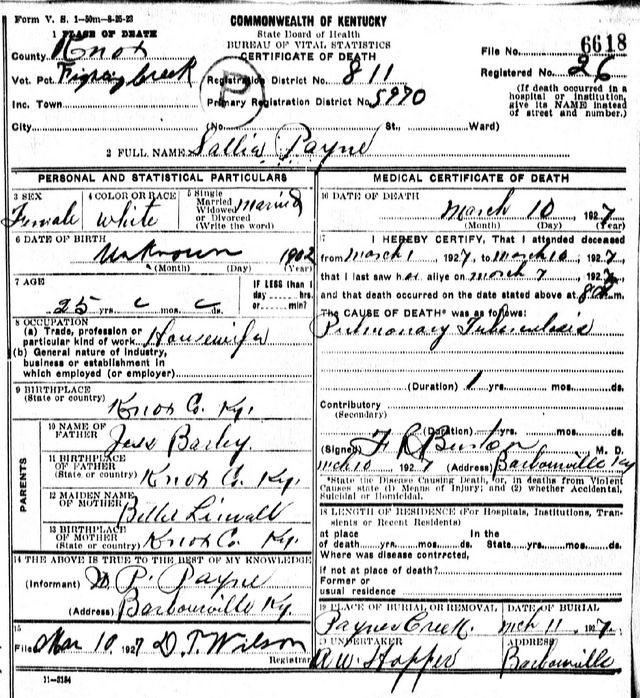 Form V. S. 1-50m-8-25-23
COMMONWEALTH OF KENTUCKY
State Board of Health
BUREAU OF VITAL STATISTICS
CERTIFICATE OF DEATH
1 PLACE OF DEATH
County Knox
Vot. Pct. Creek
Inc. Town
City
(No. St., Ward)
P
Registration District No. 811
Primary Registration District No. 5970
File No. 6618
Registered No. 26
(If death occurred in a
hospital or institution,
give its NAME instead
of street and number.)
2 FULL NAME Sallie Payne
PERSONAL AND STATISTICAL PARTICULARS
3 SEX
Female
4 COLOR OR RACE
White
5 Single
Married
Widowed
or Divorced
(Write the word)
Married
6 DATE OF BIRTH
Unknown 1902
(Month) (Day) (Year)
7 AGE
25 yrs. mos. ds.
IF LESS than 1
day hrs.
or min?
8 OCCUPATION
(a) Trade, profession or
particular kind of work Housewife
(b) General nature of industry,
business or establishment in
which employed (or employer)
9 BIRTHPLACE
(State or country)
Knox Co. Ky.
PARENTS
10 NAME OF
FATHER
Jess
11 BIRTHPLACE
OF FATHER
(State or country)
Knox Co. Ky.
12 MAIDEN NAME
OF MOTHER
13 BIRTHPLACE
OF MOTHER
(State or country)
Knox Co. Ky.
14 THE ABOVE IS TRUE TO THE BEST OF MY KNOWLEDGE
(Informant) W P. Payne
(Address) Barbourville Ky.
15
Filed Mar 10, 1927 D. T. Wilson
Registrar
11-3184
MEDICAL CERTIFICATE OF DEATH
16 DATE OF DEATH
March 10, 1927
(Month) (Day) (Year)
17 I HEREBY CERTIFY, That I attended deceased
from March 1 1927, to March 10, 1927
that I last saw her alive on March 7, 1927
and that death occurred on the date stated above at m.
The CAUSE OF DEATH* was as follows:
Pulmonary Tuberculosis
(Duration) 1 yrs. mos. ds.
Contributory
(Secondary)
(Duration) yrs. mos. ds.
(Signed) F R Burton M. D.
Mch 10 1927 (Address) Barbourville Ky
*State the Disease Causing Death, or, in deaths from Violent
Causes state (1) Means of Injury; and (2) whether Accidental,
Suicidal or Homicidal.
18 LENGTH OF RESIDENCE (For Hospitals, Institutions, Tran-
sients or Recent Residents)
at place In the
of death yrs. mos. ds. State yrs. mos. ds.
Where was disease contrcted,
if not at place of death?
Former or
usual residence
19 PLACE OF BURIAL OR REMOVAL
Paynes Creek.
DATE OF BURIAL
Mch 11, 1927.
20 UNDERTAKER
A. W. Hopper
ADDRESS
Barbourville